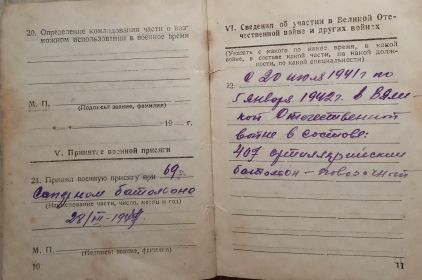 20. Определение командования части о воз-
можном использовании в военное время
М. П.
(Подпись: звание, фамилия)
19 г.
V. Принятие военной присяги
21. Принял военную присягу при 69
Саперном батальоне
(Наименование части, число, месяц и год)
28/III-1947
М. П.
(Подпись: звание, фамилия)
10
VI. Сведения об участии в Великой Оте-
чественной войне и других войнах
(Указать с какого по какое время, в какой
войне, в составе какой части, на какой долж-
ности, по какой специальности)
22.
С 20 июля 1941 г по
5 января 1942 г. в Вели-
кой Отечественной
войне в составе:
407 артиллерийский
батальон -
11